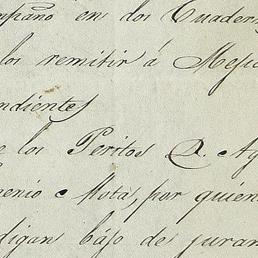 en dos Cuader
los remitir á Mejic
ndientes
e los Peritos D. Ag
enio Mota, por quien
digan bajo de juram